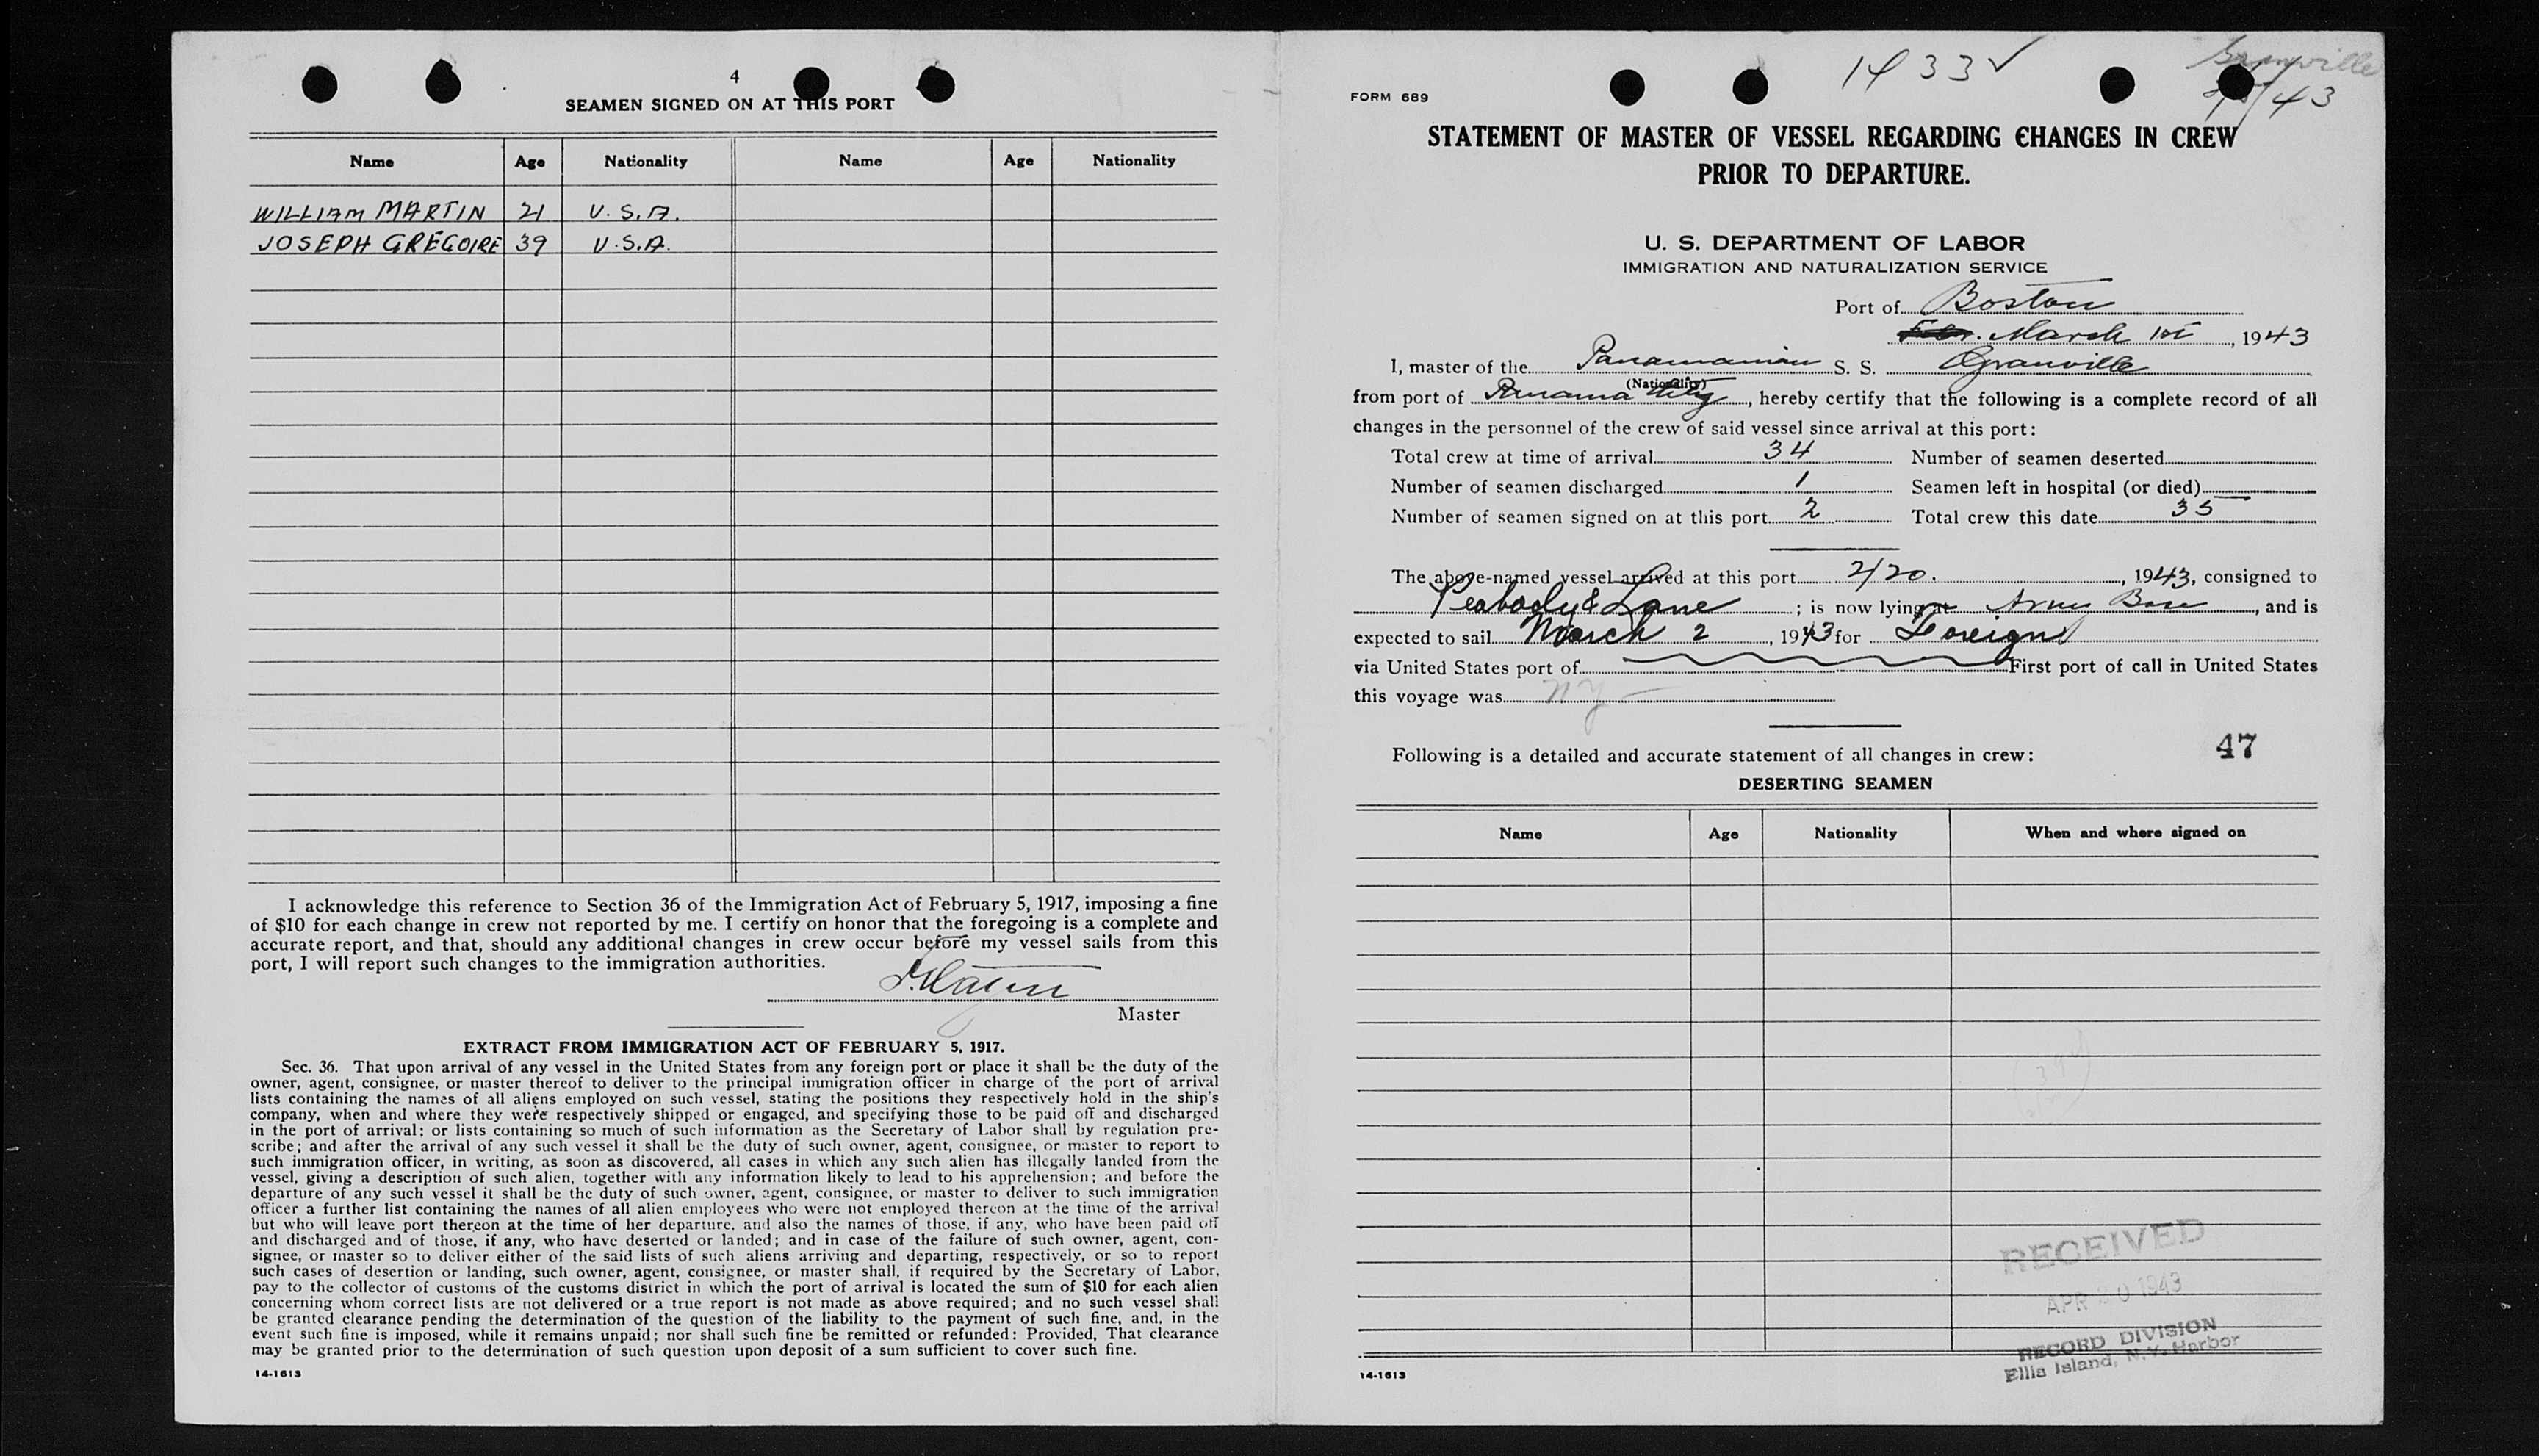 4
SEAMEN SIGNED ON AT THIS PORT
Name Age Nationality Name Age Nationality
WILLIAM MARTIN 21 U.S.A.
JOSEPH GREGOIRE 39 U.S.A.
I acknowledge this reference to Section 36 of the Immigration Act of February 5, 1917, imposing a fine
of $10 for each change in crew not reported by me. I certify on honor that the foregoing is a complete and
accurate report, and that, should any additional changes in crew occur before my vessel sails from this
port, I will report such changes to the immigration authorities.
Master
EXTRACT FROM IMMIGRATION ACT OF FEBRUARY 5, 1917.
Sec. 36. That upon arrival of any vessel in the United States from any foreign port or place it shall be the duty of the
owner, agent, consignee, or master thereof to deliver to the principal immigration officer in charge of the port of arrival
lists containing the names of all aliens employed on such vessel, stating the positions they respectively hold in the ship's
company, when and where they were respectively shipped or engaged, and specifying those to be paid off and discharged
in the port of arrival; or lists containing so much of such information as the Secretary of Labor shall by regulation pre-
scribe; and after the arrival of any such vessel it shall be the duty of such owner, agent, consignee, or master to report to
such immigration officer, in writing, as soon as discovered, all cases in which any such alien has illegally landed from the
vessel, giving a description of such alien, together with any information likely to lead to his apprehension; and before the
departure of any such vessel it shall be the duty of such owner, agent, consignee, or master to deliver to such immigration
officer a further list containing the names of all alien employees who were not employed thereon at the time of the arrival
but who will leave port thereon at the time of her departure, and also the names of those, if any, who have been paid off
and discharged and of those, if any, who have deserted or landed; and in case of the failure of such owner, agent, con-
signee, or master so to deliver either of the said lists of such aliens arriving and departing, respectively, or so to report
such cases of desertion or landing, such owner, agent, consignee, or master shall, if required by the Secretary of Labor,
pay to the collector of customs of the customs district in which the port of arrival is located the sum of $10 for each alien
concerning whom correct lists are not delivered or a true report is not made as above required; and no such vessel shall
be granted clearance pending the determination of the question of the liability to the payment of such fine, and, in the
event such fine is imposed, while it remains unpaid; nor shall such fine be remitted or refunded: Provided, That clearance
may be granted prior to the determination of such question upon deposit of a sum sufficient to cover such fine.
14-1613
1433 ✓
Granville
/43
FORM 689
STATEMENT OF MASTER OF VESSEL REGARDING CHANGES IN CREW
PRIOR TO DEPARTURE.
U. S. DEPARTMENT OF LABOR
IMMIGRATION AND NATURALIZATION SERVICE
Port of Boston
March 1st, 1943
I, master of the Panamanian S. S. Granville
(Nationality)
from port of Panama City, hereby certify that the following is a complete record of all
changes in the personnel of the crew of said vessel since arrival at this port:
Total crew at time of arrival 34 Number of seamen deserted
Number of seamen discharged 1 Seamen left in hospital (or died)
Number of seamen signed on at this port 2 Total crew this date 35
The above-named vessel arrived at this port 2/20., 1943, consigned to
Peabody & Lane; is now lying at Army Base, and is
expected to sail March 2, 1943 for Foreign
via United States port of First port of call in United States
this voyage was NY
Following is a detailed and accurate statement of all changes in crew:
47
DESERTING SEAMEN
Name Age Nationality When and where signed on
RECEIVED
APR 20 1943
RECORD DIVISION
Ellis Island, N.Y. Harbor
14-1613